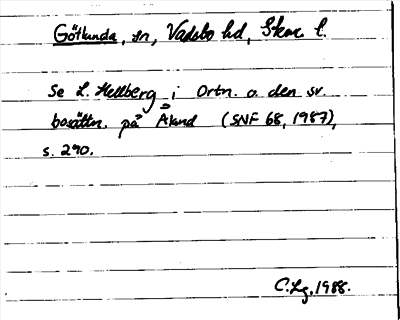 Götlunda, sn, Vadsbo hd, Skar. l.
Se L. Hellberg i Ortn. o. den sv.
bosättn. på Åland (SNF 68, 1987),
s. 290.
C. Lg, 1988.